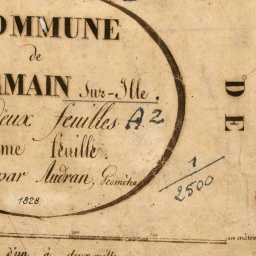 OMMUNE
de
MAIN Sur-Ille.
deux feuilles A2
me feuille.
par Audran, Géomètre
1828
1
2500
DE
d'un à deux mille